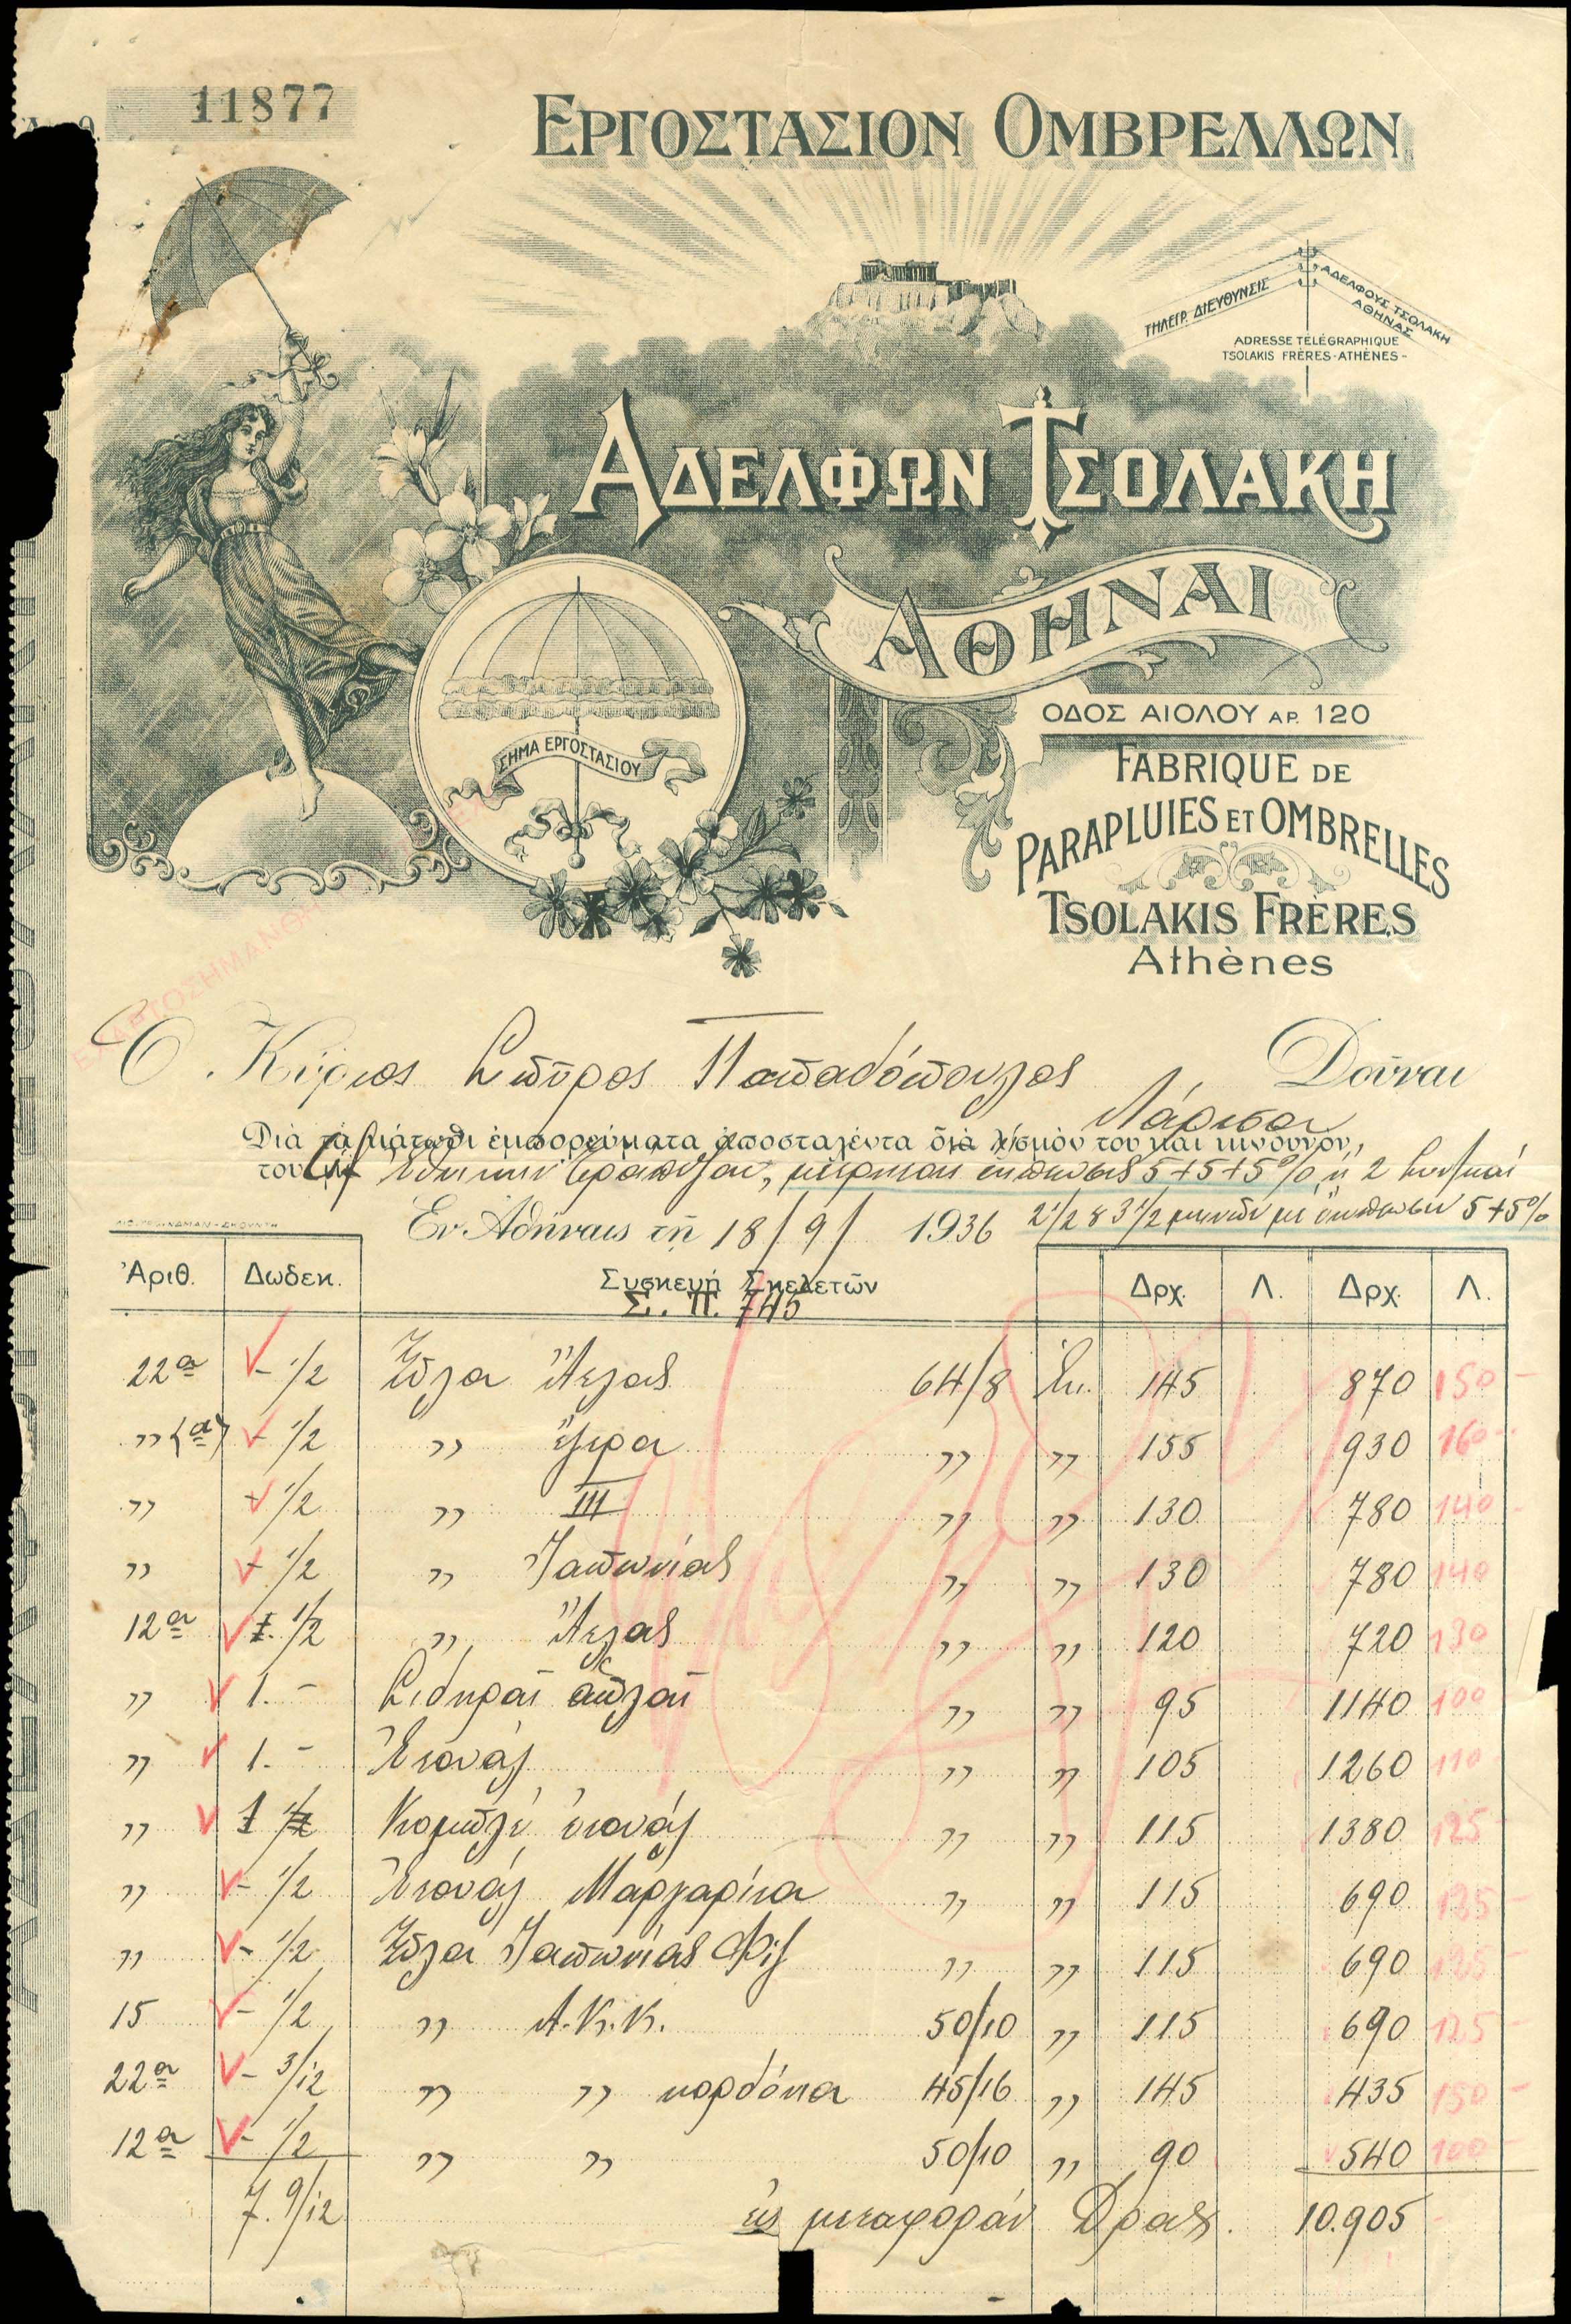 11877
ΕΡΓΟΣΤΑΣΙΟΝ ΟΜΒΡΕΛΛΩΝ
ΤΗΛΕΓΡ. ΔΙΕΥΘΥΝΣΙΣ
ΑΔΕΛΦΟΥΣ ΤΣΟΛΑΚΗ
ΑΘΗΝΑΣ
ADRESSE TÉLÉGRAPHIQUE
TSOLAKIS FRÈRES-ATHÈNES-
ΑΔΕΛΦΩΝ ΤΣΟΛΑΚΗ
ΑΘΗΝΑΙ
ΣΗΜΑ ΕΡΓΟΣΤΑΣΙΟΥ
ΟΔΟΣ ΑΙΟΛΟΥ ΑΡ. 120
FABRIQUE DE
PARAPLUIES ET OMBRELLES
TSOLAKIS FRÈRES
Athènes
Ὁ Κύριος Σπῦρος Παπαδόπουλος Δοῦναι
Λάρισαν
Διὰ τὰ κάτωθι ἐμπορεύματα ἀποσταλέντα διὰ λ)σμὸν του καὶ κίνδυνον,
του 5+5+5% ἢ 2
2 1/2 & 3 1/2 μηνῶν με ἔκπτωσιν 5+5%
Ἐν Ἀθήναις τῇ 18/9/1936
Ἀριθ. Δωδεκ. Συσκευή Σκελετῶν Δρχ. Λ. Δρχ. Λ.
Σ. Π. 745
22α - 1/2 Ξύλα Ἄτλας 64/8 145 870 150
" (α) - 1/2 " " " 155 930 160
" - 1/2 " III " " 130 780 140
" - 1/2 " Ἰαπωνίας " " 130 780 140
12α 1/2 " Ἄτλας " " 120 720 130
" 1.- Σιδηραῖ ἁπλαῖ " " 95 1140 100
" 1.- " " 105 1260 110
" 1 Κομπλὲ " " 115 1380 125
" - 1/2 Μαργαρίτα " " 115 690 125
" - 1/2 Ξύλα Ἰαπωνίας Φίλ " " 115 690 125
15 - 1/2 " Α.Κ.Κ. 50/10 " 115 690 125
22α - 3/12 " " κορδόνια 45/16 " 145 435 150
12α - 1/2 " " 50/10 " 90 540 100
7. 9/12 εἰς μεταφορὰν Δραχ. 10.905